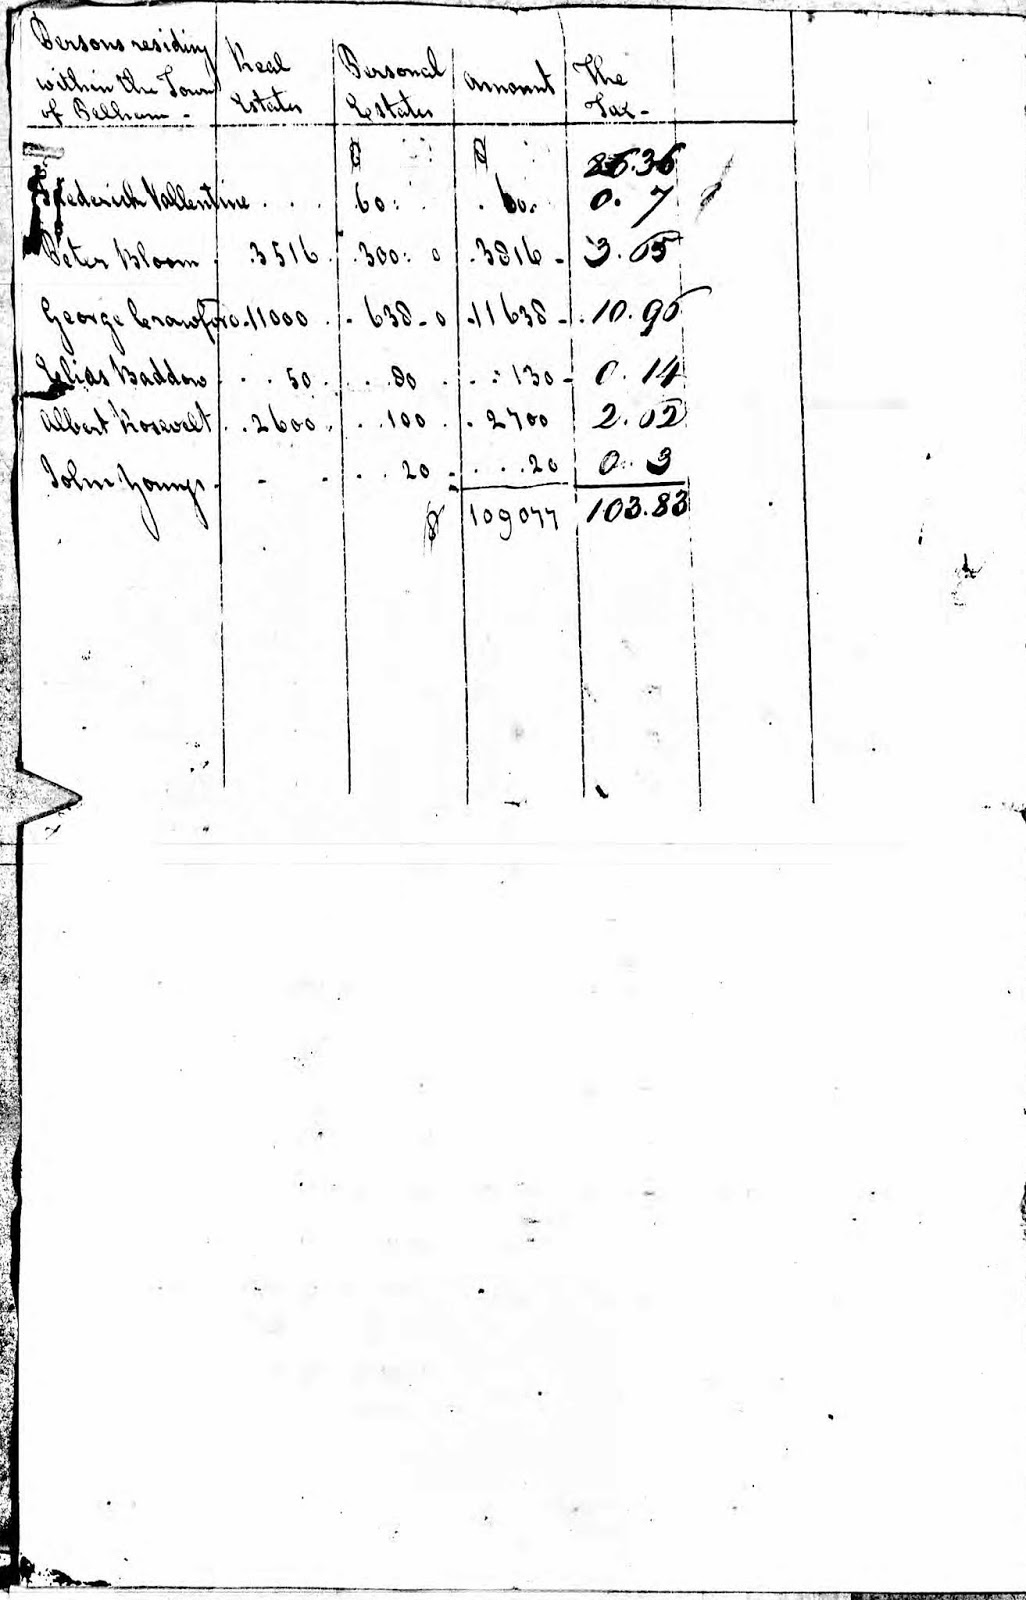 Persons residing within the Town of Pelham - | Real Estates | Personal Estates | Amount | The Tax -
$ $ 86.36
Frederick Vallentine . . . 60: . 60. 0. 7
Peter Bloom . 3516 . 300: 0 . 3816 - 3.05
George Crawford . 11000 . . 638 - 0 . 11638 - . 10.90
Elias Baddow . . 50 . . 80 . . 130 - 0. 14
Albert Rosevelt . . 2600 . . . 100 . . 2700 2.02
John Youngs - - - . . 20 - . . . 20 0. 3
$ 109077 103.83